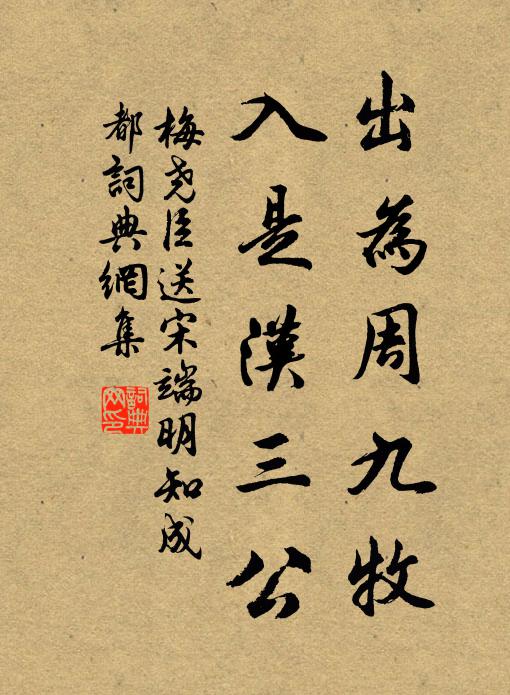 出為周九牧
入是漢三公
梅堯臣送宋端明知成
都詞典網集
詞典
网印